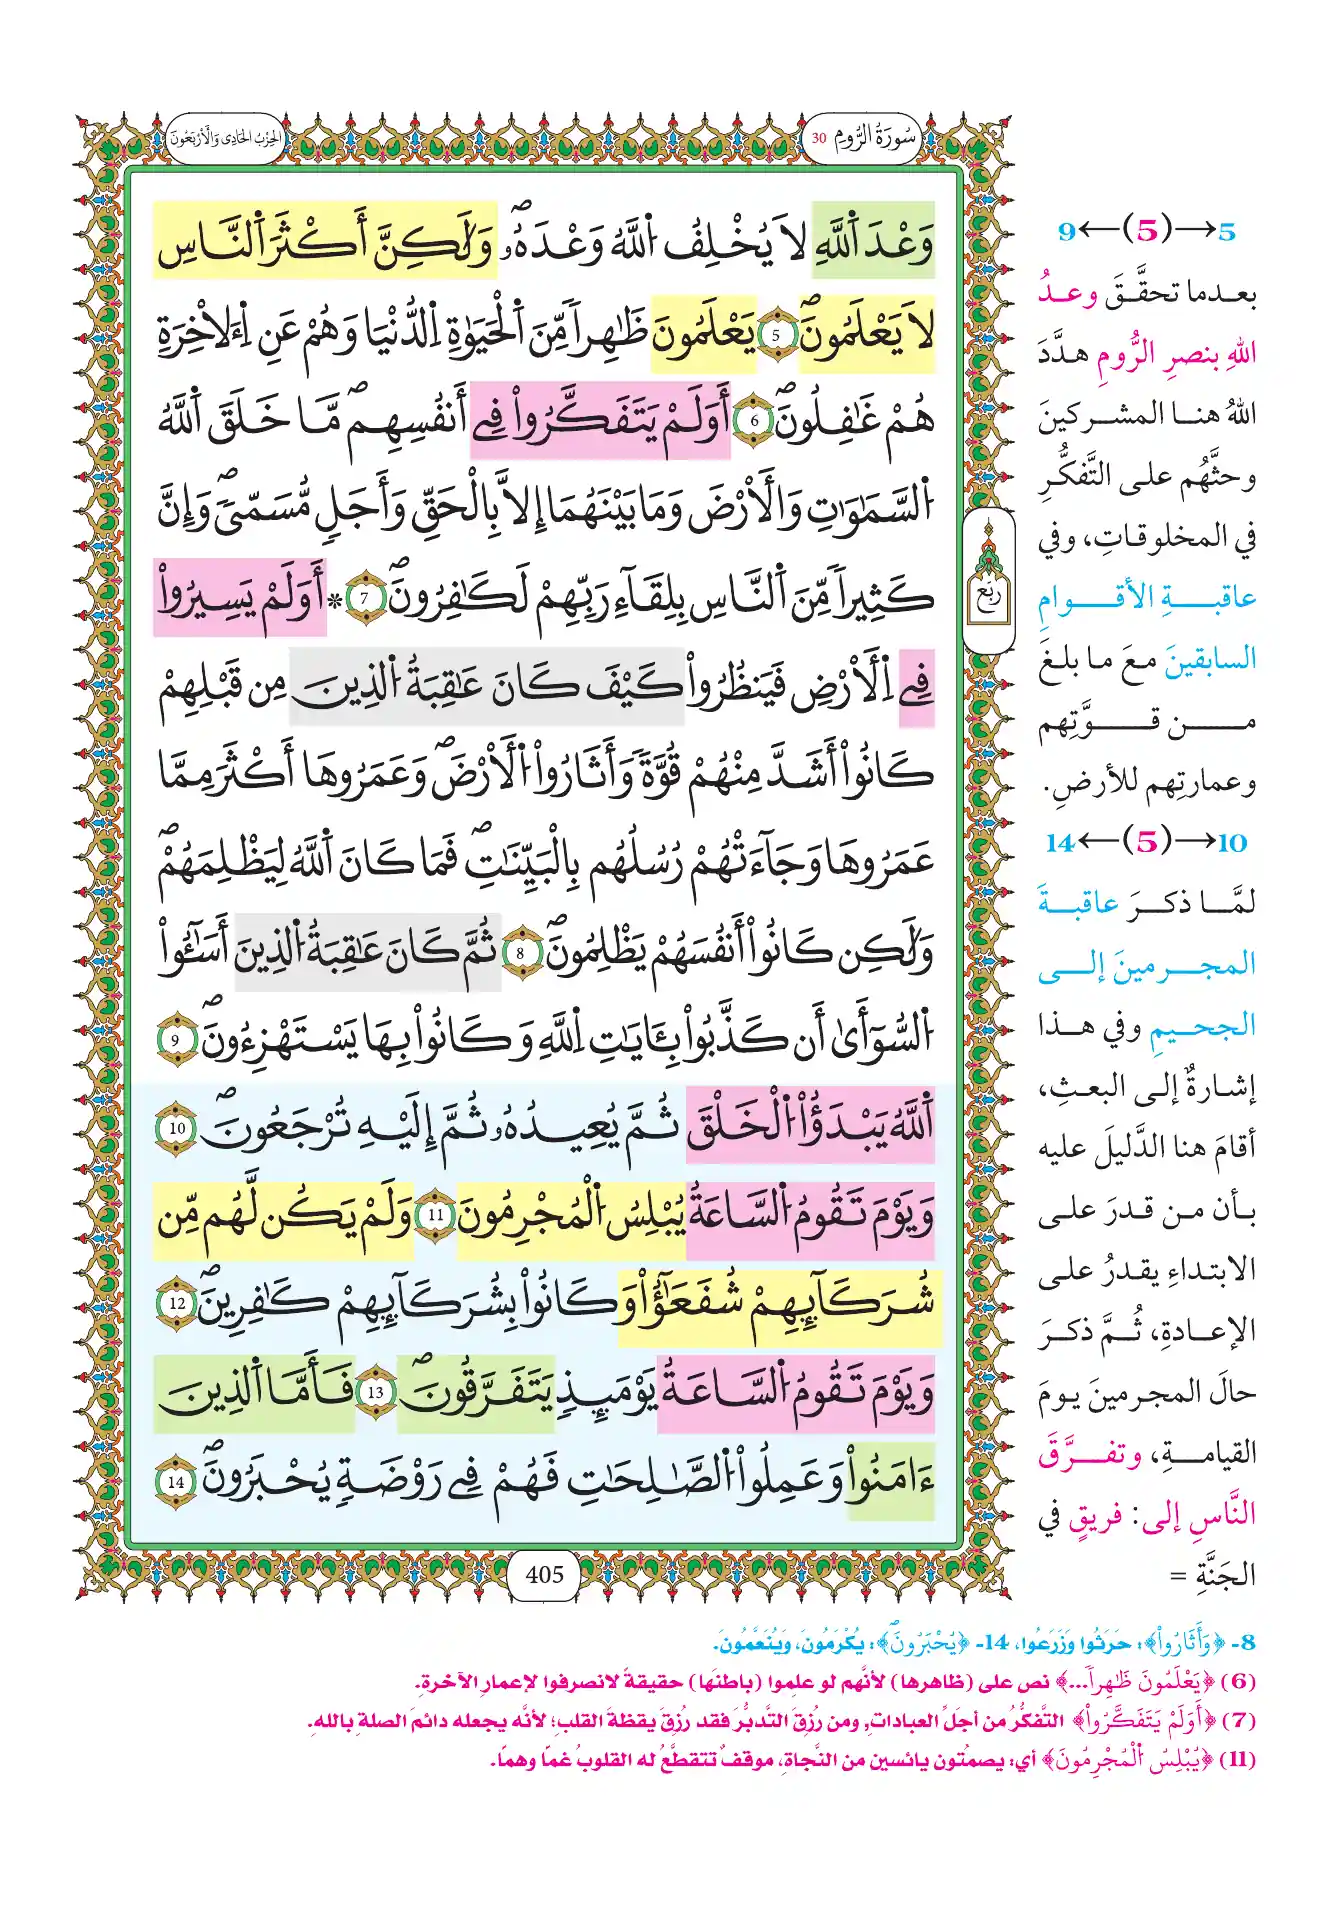 سُورَةُ الرُّومِ 30
الحِزْبُ الحَادِي وَالْأَرْبَعُونَ
وَعْدَ اَ۬للَّهِ لَا يُخْلِفُ اُ۬للَّهُ وَعْدَهُۥۖ وَلَٰكِنَّ أَكْثَرَ اَ۬لنَّاسِ
لَا يَعْلَمُونَۖ 5 يَعْلَمُونَ ظَٰهِراٗ مِّنَ اَ۬لْحَيَوٰةِ اِ۬لدُّنْيَا وَهُمْ عَنِ اِ۬لَاخِرَةِ
هُمْ غَٰفِلُونَۖ 6 أَوَلَمْ يَتَفَكَّرُواْ فِے أَنفُسِهِمۖ مَّا خَلَقَ اَ۬للَّهُ
اُ۬لسَّمَٰوَٰتِ وَالَارْضَ وَمَا بَيْنَهُمَا إِلَّا بِالْحَقِّ وَأَجَلٖ مُّسَمّيٗۖ وَإِنَّ
كَثِيراٗ مِّنَ اَ۬لنَّاسِ بِلِقَآءِ رَبِّهِمْ لَكَٰفِرُونَۖ 7 * أَوَلَمْ يَسِيرُواْ
فِے اِ۬لَارْضِ فَيَنظُرُواْ كَيْفَ كَانَ عَٰقِبَةُ اُ۬لذِينَ مِن قَبْلِهِمْ
كَانُواْ أَشَدَّ مِنْهُمْ قُوَّةٗ وَأَثَارُواْ اُ۬لَارْضَۖ وَعَمَرُوهَا أَكْثَرَ مِمَّا
عَمَرُوهَا وَجَآءَتْهُمْ رُسُلُهُم بِالْبَيِّنَٰتِۖ فَمَا كَانَ اَ۬للَّهُ لِيَظْلِمَهُمْۖ
وَلَٰكِن كَانُواْ أَنفُسَهُمْ يَظْلِمُونَۖ 8 ثُمَّ كَانَ عَٰقِبَةُ اُ۬لذِينَ أَسَٰٓـُٔواْ
اُ۬لسُّوٓأ۪يٰٓ أَن كَذَّبُواْ بِـَٔايَٰتِ اِ۬للَّهِ وَكَانُواْ بِهَا يَسْتَهْزِءُونَۖ 9
اَ۬للَّهُ يَبْدَؤُاْ اُ۬لْخَلْقَ ثُمَّ يُعِيدُهُۥ ثُمَّ إِلَيْهِ تُرْجَعُونَۖ 10
وَيَوْمَ تَقُومُ اُ۬لسَّاعَةُ يُبْلِسُ اُ۬لْمُجْرِمُونَ 11 وَلَمْ يَكُن لَّهُم مِّن
شُرَكَآئِهِمْ شُفَعَٰٓؤُاْ وَكَانُواْ بِشُرَكَآئِهِمْ كَٰفِرِينَۖ 12
وَيَوْمَ تَقُومُ اُ۬لسَّاعَةُ يَوْمَئِذٖ يَتَفَرَّقُونَۖ 13 فَأَمَّا اَ۬لذِينَ
ءَامَنُواْ وَعَمِلُواْ اُ۬لصَّٰلِحَٰتِ فَهُمْ فِے رَوْضَةٖ يُحْبَرُونَۖ 14
ربع
405
5→(5)←9
بعدما تحقَّقَ وعدُ
اللهِ بنصرِ الرُّومِ هدَّدَ
اللهُ هنا المشركينَ
وحثَّهُم على التَّفكُّرِ
في المخلوقاتِ، وفي
عاقبةِ الأقوامِ
السابقينَ معَ ما بلغَ
من قوَّتِهم
وعمارتِهم للأرضِ.
10→(5)←14
لمَّا ذكرَ عاقبةَ
المجرمينَ إلى
الجحيمِ وفي هذا
إشارةٌ إلى البعثِ،
أقامَ هنا الدَّليلَ عليه
بأن من قدرَ على
الابتداءِ يقدرُ على
الإعادةِ، ثُمَّ ذكرَ
حالَ المجرمينَ يومَ
القيامةِ، وتفرَّقَ
النَّاسِ إلى: فريقٍ في
الجَنَّةِ =
8- ﴿وَأَثَارُواْ﴾: حَرَثُوا وَزَرَعُوا، 14- ﴿يُحْبَرُونَۖ﴾: يُكْرَمُونَ، وَيُنَعَّمُونَ.
(6) ﴿يَعْلَمُونَ ظَٰهِراٗ...﴾ نص على (ظاهرها) لأنَّهم لو علِموا (باطنَها) حقيقةً لانصرفوا لإعمارِ الآخرةِ.
(7) ﴿أَوَلَمْ يَتَفَكَّرُواْ﴾ التَّفكُّرُ من أجَلِّ العبادات، ومن رُزِقَ التَّدبُّرَ فقد رُزِقَ يقظةَ القلبِ؛ لأنَّه يجعله دائمَ الصلةِ بالله.
(11) ﴿يُبْلِسُ اُ۬لْمُجْرِمُونَ﴾ أي: يصمتُون يائسين من النَّجاةِ، موقفٌ تتقطَّعُ له القلوبُ غمًا وهمًا.